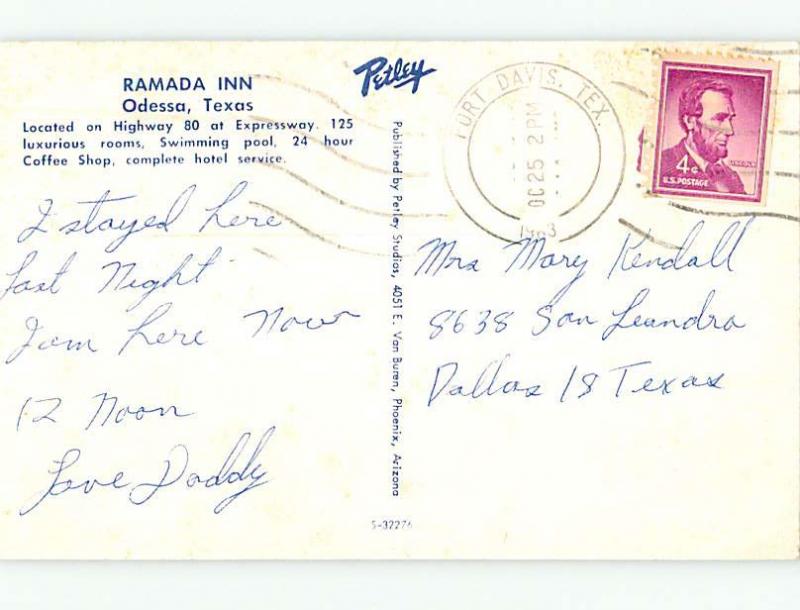 RAMADA INN
Odessa, Texas
Located on Highway 80 at Expressway. 125
luxurious rooms, Swimming pool, 24 hour
Coffee Shop, complete hotel service.
I stayed here
last Night
I am here Now
12 Noon
Love Daddy
Petley
Published by Petley Studios, 4051 E. Van Buren, Phoenix, Arizona
S-32276
FORT DAVIS, TEX.
OC 25 2 PM
1963
4¢
LINCOLN
U.S. POSTAGE
Mrs Mary Kendall
8638 San Leandro
Dallas 18 Texas